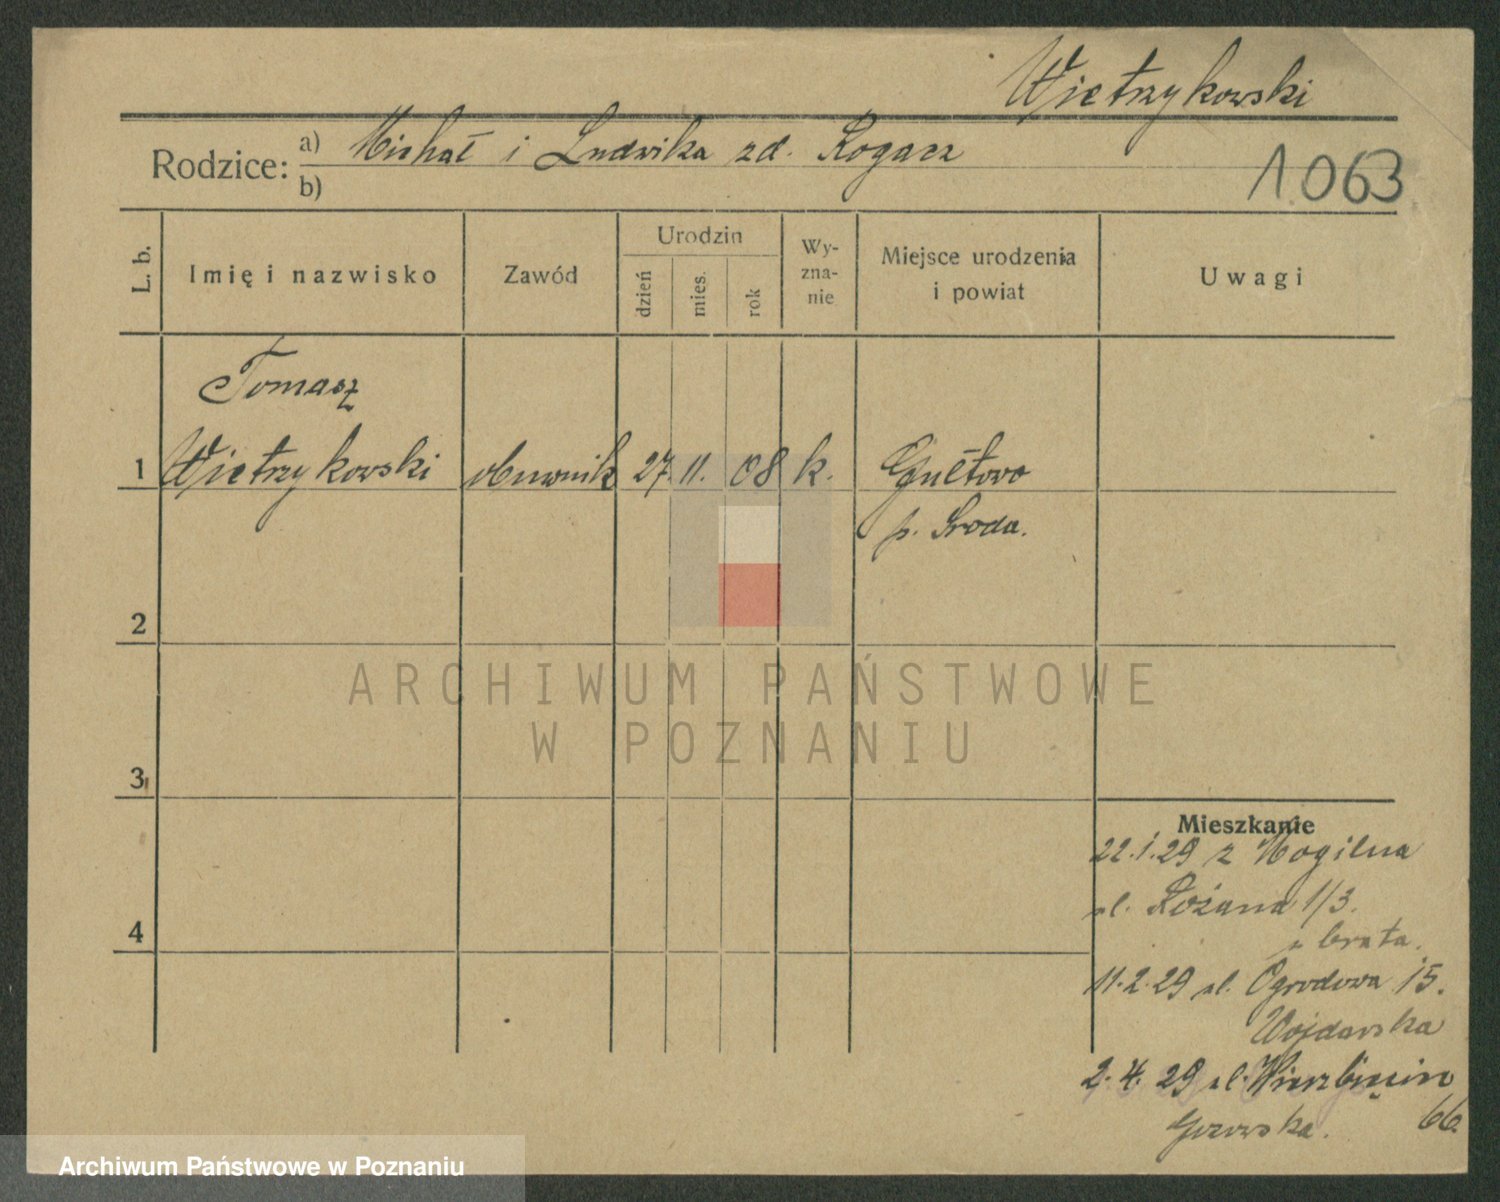 Wietrzykowski
Rodzice: a) Michał i Ludwika zd. Rogacz
b)
1063
L. b.
Imię i nazwisko
Zawód
Urodzin
dzień
mies.
rok
Wy-
zna-
nie
Miejsce urodzenia
i powiat
Uwagi
Tomasz
1 Wietrzykowski obuwnik 27. 11. 08 k. Gułtowo
p. Sroda.
2
3
4
ARCHIWUM PAŃSTWOWE
W POZNANIU
Mieszkanie
22.1.29 z Mogilna
ul. Rożana 1/3.
u brata.
11.2.29 ul. Ogrodowa 15.
2.4.29 ul. Wierzbięcin
66.
Archiwum Państwowe w Poznaniu